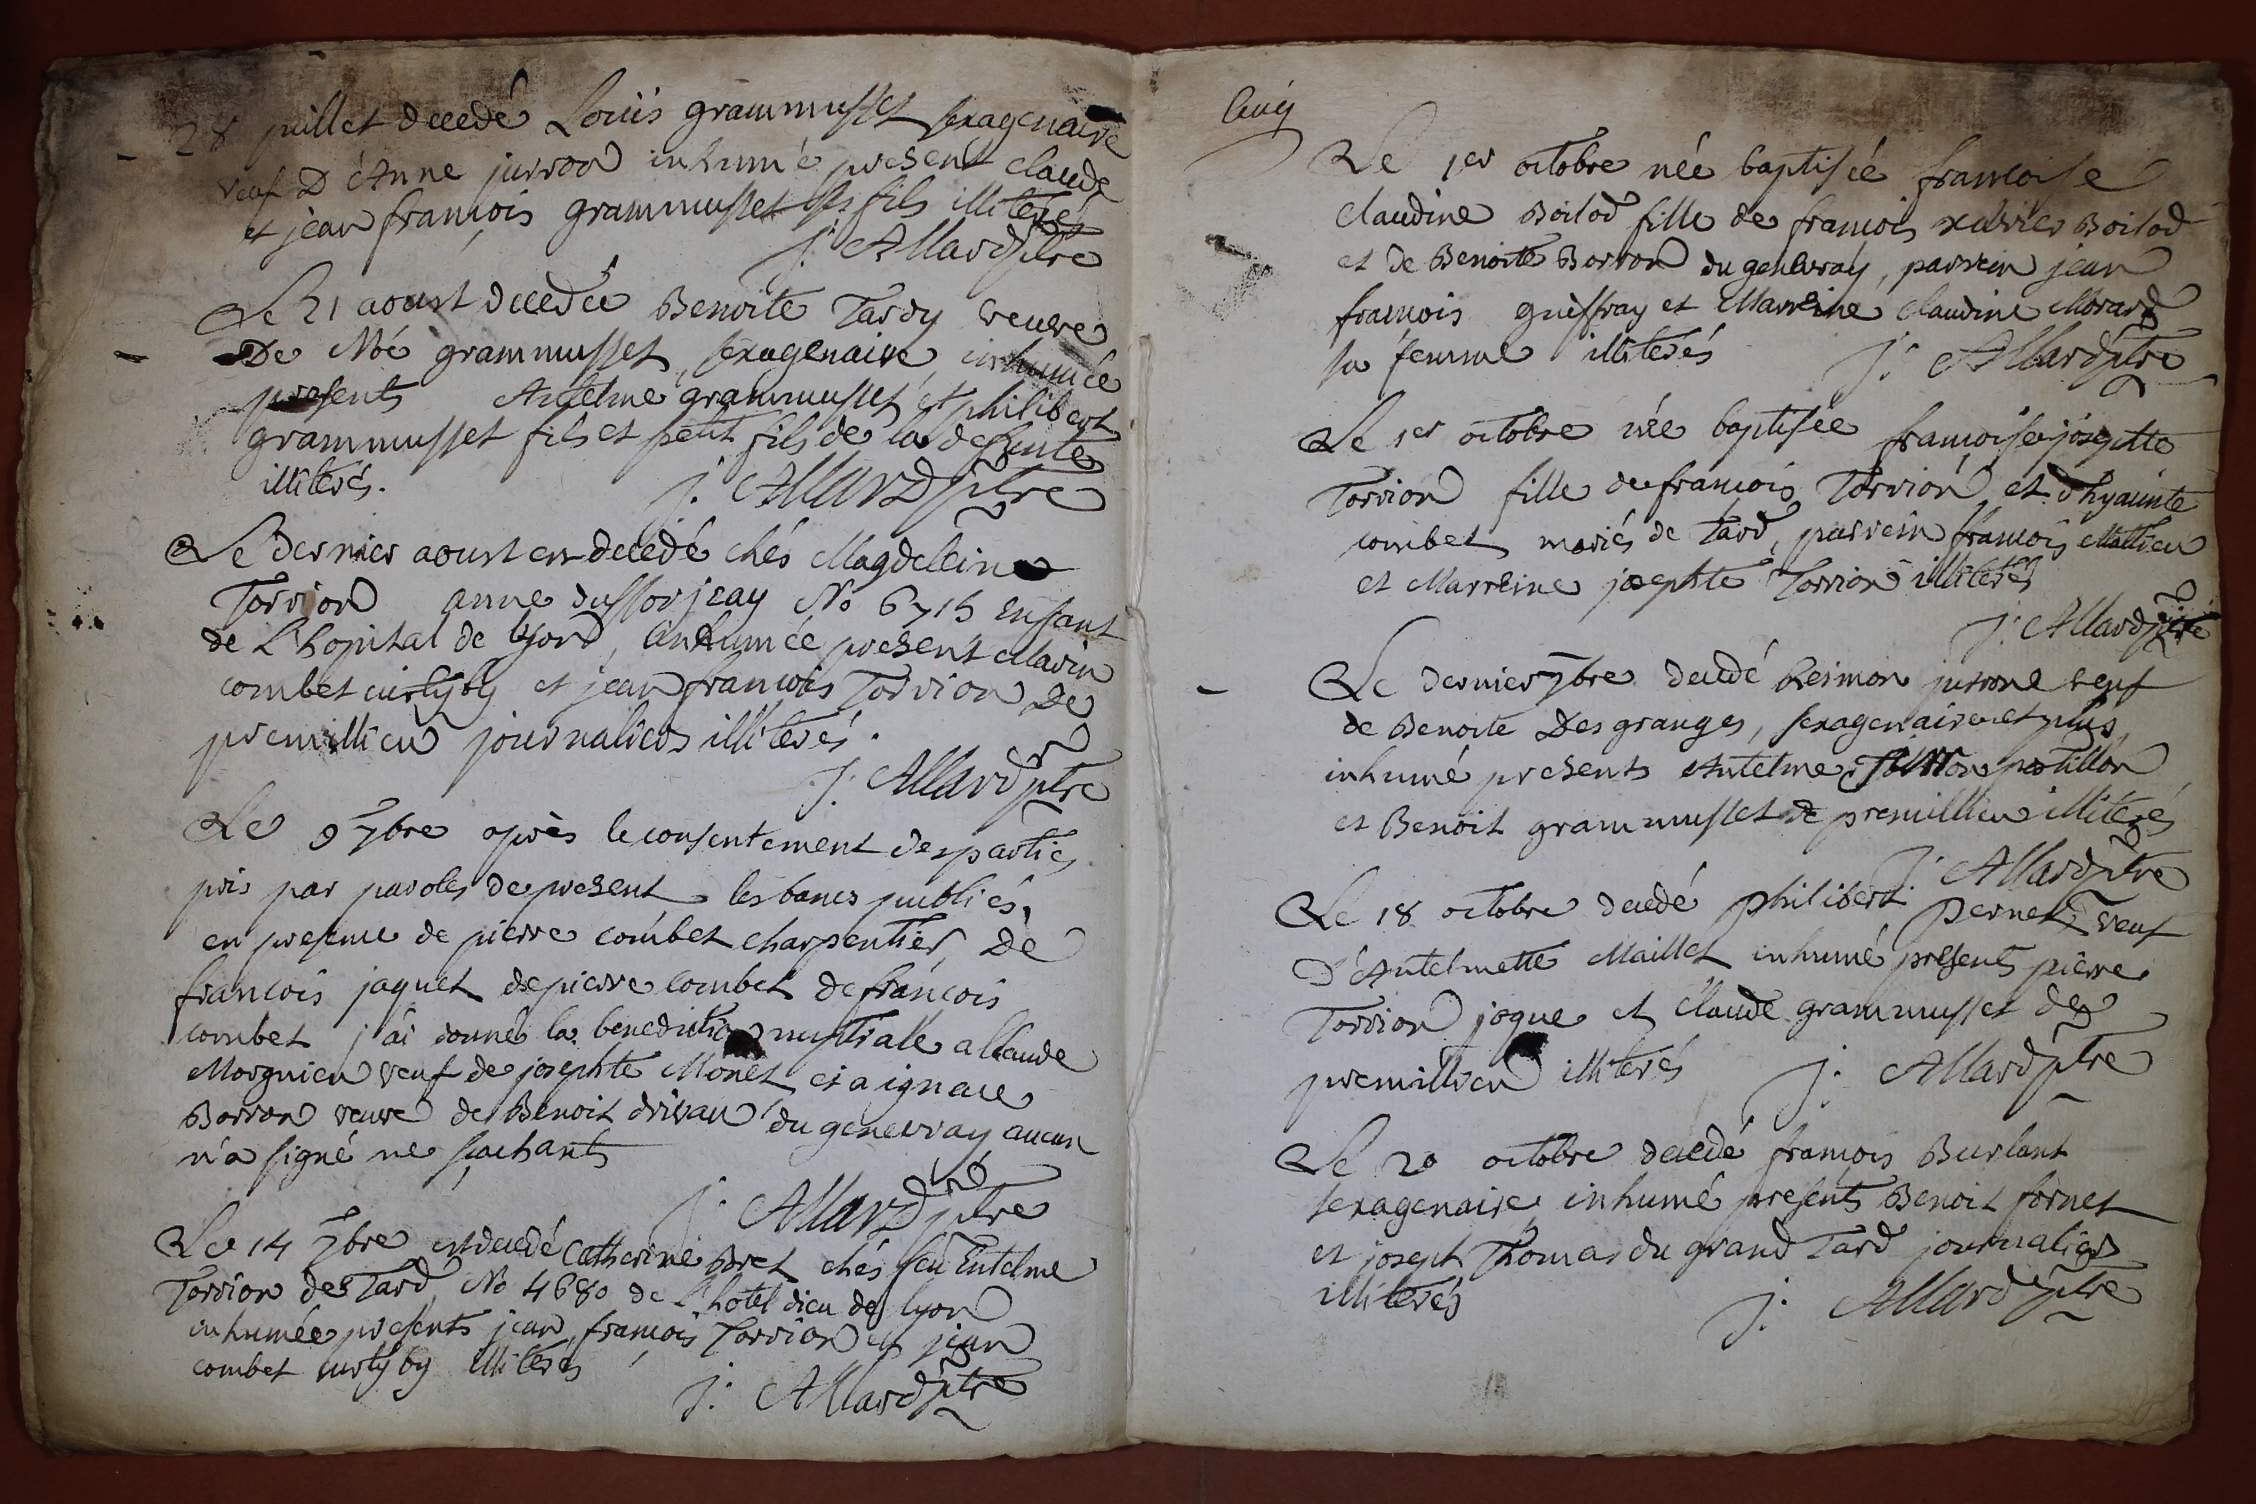 28 juillet decedé Loüis grammusset sexagenaire
veuf D'Anne jurron inhumé present claude
et jean françois grammusset ses fils illiterés
j: Allard ptre
Le 21 aoust decedée Benoite Tardy veuve
De Noé grammusset, sexagenaire inhumée
presents Antelme grammusset et philibert
grammusset fils et petit fils de la defunte
illiterés.
j. Allard ptre
Le dernier aoust est decedé chés Magdeleine
Torrion anne No 6715 enfant
de L'hopital de lyon, inhumée present Marin
combet et jean françois Torrion De
premillieu journaliers illiterés.
j: Allard ptre
Le 9 7bre après le consentement des parties
pris par paroles de present les bancs publiés,
en presence de pierre combet charpentier, De
françois jaquet de pierre combet de françois
combet j'ai donné la benediction nuptiale a Claude
Morgnieu veuf de josephte Monet et a ignace
Borron veuve de Benoit drivau du genevray aucun
n'a signé ne sachants
j: Allard ptre
Le 14 7bre est decedé Catherine Bret chés feu Entelme
Torrion de Tard No 4680 de L'hotel dieu de lyon
inhumée presents jean françois Torrion et jean
combet illiterés
j: Allard ptre
Le 1er octobre née baptisée françoise
claudine Boilod fille de françois xavier Boilod
et de Benoite Borron du genevray, parrein jean
françois gueffray et Marreine claudine Morard
sa femme illiterés j: Allard ptre
Le 1er octobre née baptisée françoise josephte
Torrion fille de françois Torrion et d'hyacinte
combet mariés de Tard, parrein françois Mathieu
et Marreine josephte Torrion illiterés
j: Allard ptre
Le dernier 7bre decedé jurrone veuf
de Benoite Desgranges, sexagenaire et plus,
inhumé presents Antelme postillon
et Benoit grammusset de premillieu illiterés
j: Allard ptre
Le 18 octobre decedé philibert pernet veuf
D'Antelmette Maillet inhumé presents pierre
Torrion joque et Claude grammusset de
premillieu illiterés j: Allard ptre
Le 20 octobre decedé françois Burlant
sexagenaire inhumé presents Benoit fornet
et joseph Thomas du grand Tard journaliers
illiterés j: Allard ptre